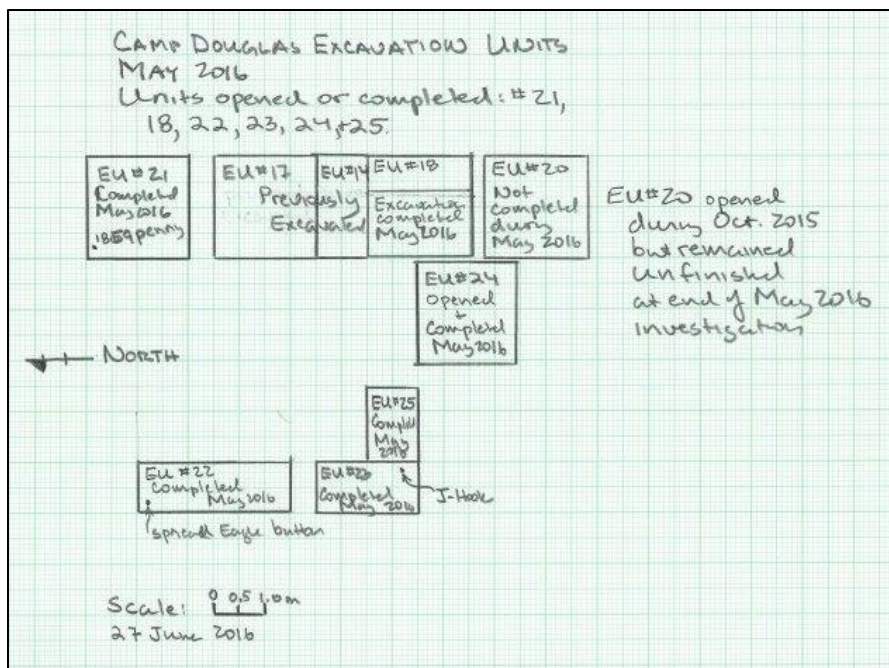 CAMP DOUGLAS EXCAVATION UNITS
MAY 2016
Units opened or completed: #21,
18, 22, 23, 24, + 25.
EU#21
Completed
May 2016
.1859 penny
EU#17
EU#14
Previously
Excavated
EU#18
Excavation
completed
May 2016
EU#20
Not
completed
during
May 2016
EU#20 opened
during Oct. 2015
but remained
unfinished
at end of May 2016
investigation
EU#24
Opened
+
Completed
May 2016
NORTH
EU#25
May
EU #22
Completed
May 2016
spread Eagle button
Completed
May 2016
J-Hook
Scale: 0 0.5 1.0m
27 June 2016